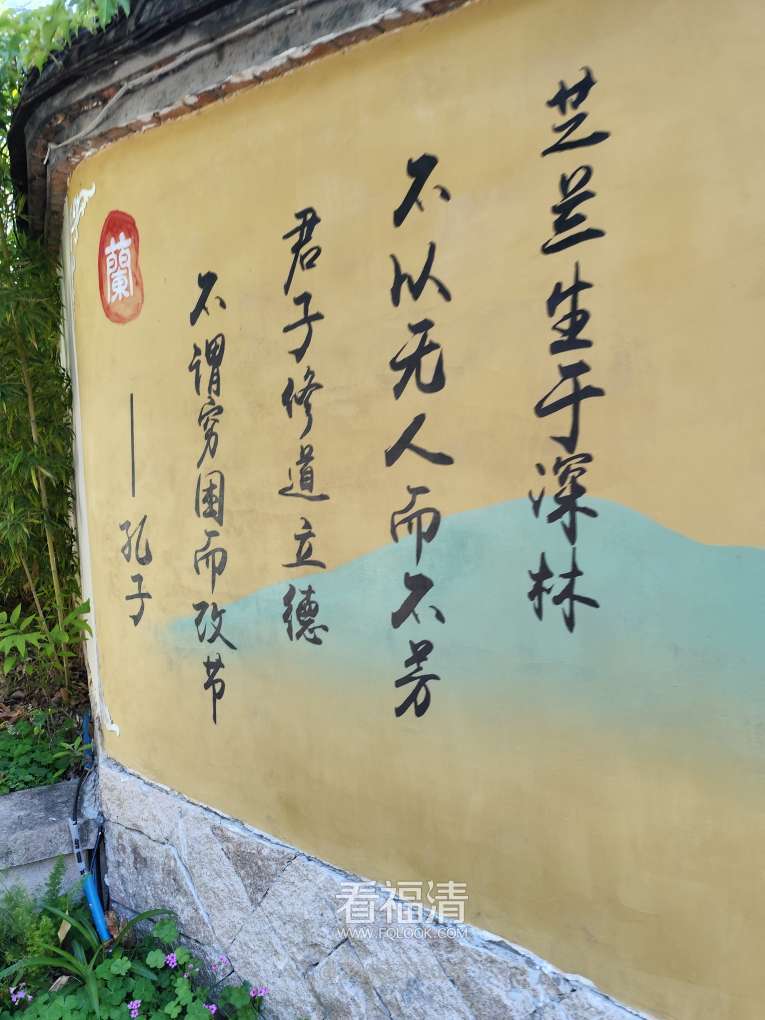 芝兰生于深林
不以无人而不芳
君子修道立德
不谓穷困而改节
——孔子
蘭
看福清
WWW.FOLOOK.COM